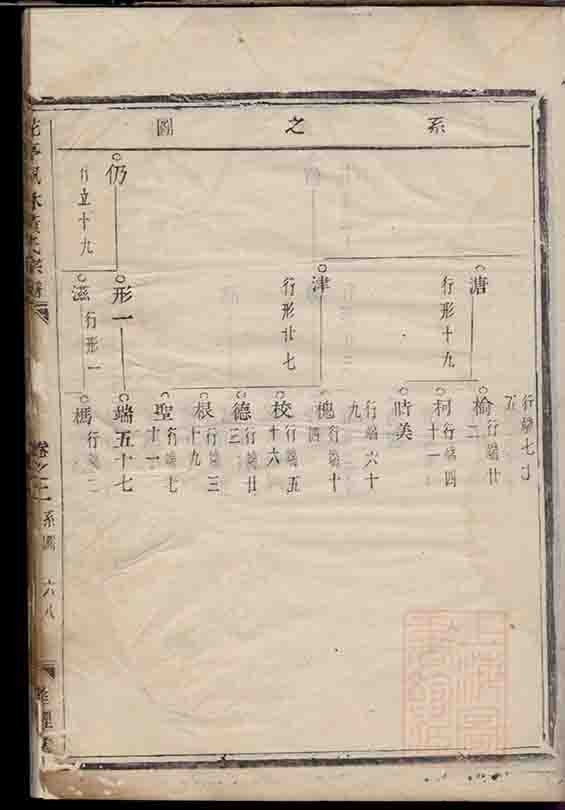 系之圖
行端七十
溏
行形十九
榆
行端廿二
柯
行端四十一
時美
行端六十九
津
行形廿七
槐
行端十四
校
行端五十六
德
行端廿三
根
行端三十九
聖
行端七十一
仍
行立十九
形一
端五十七
滋
行形一
榪
行端二
氏宗譜
卷之二
系圖
六八